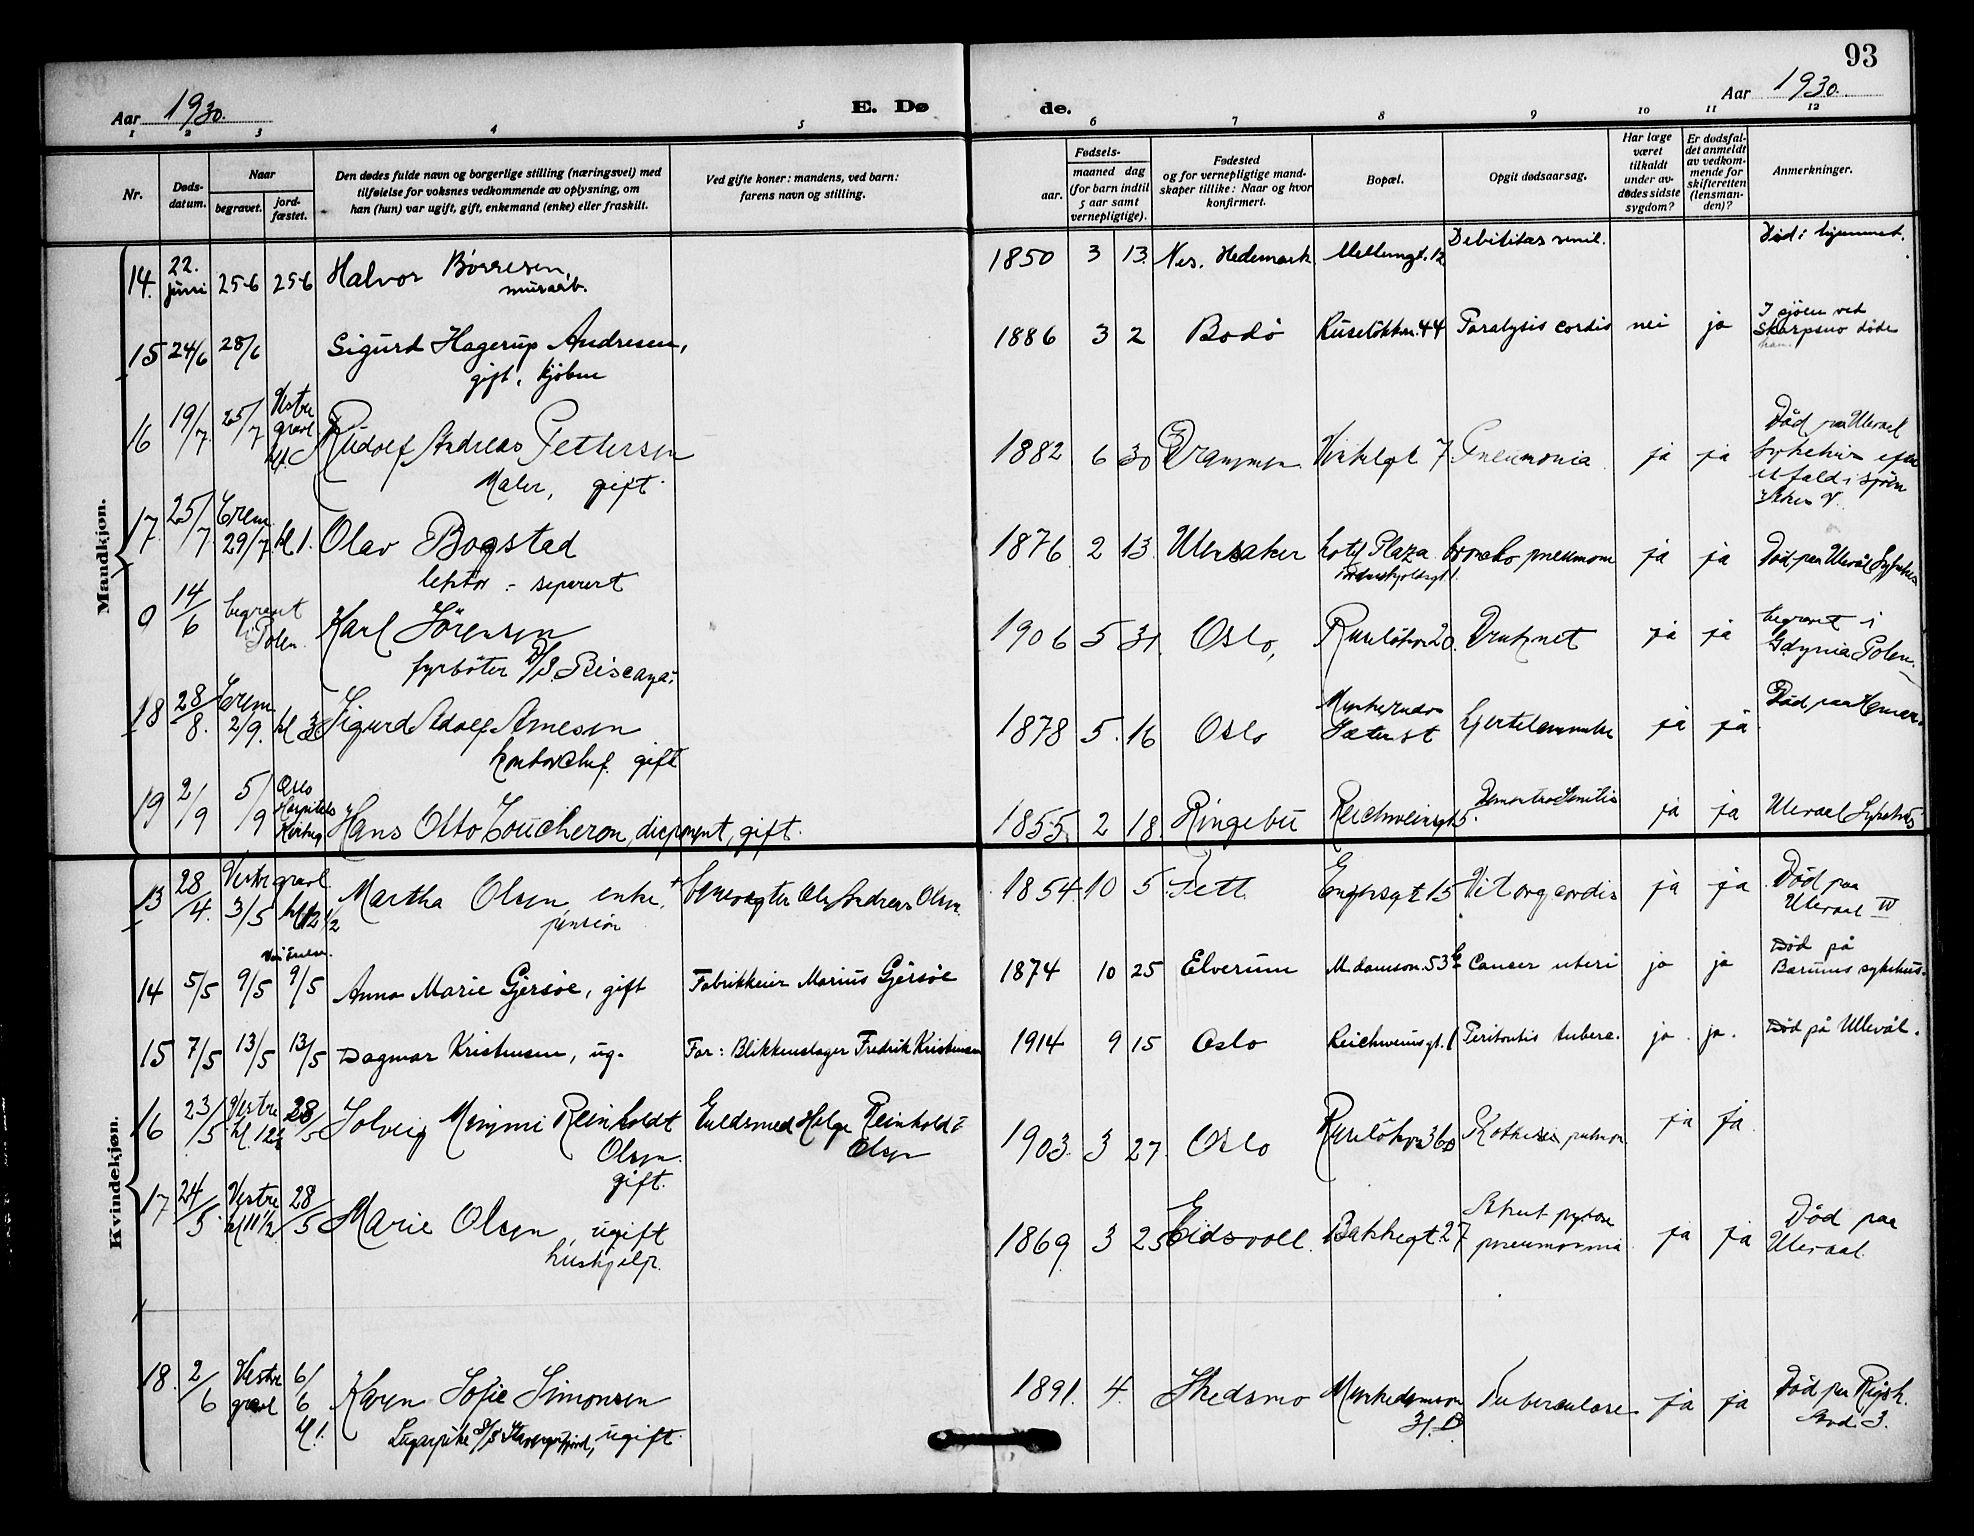 93
Aar 1930.
E. Dø
de.
Aar 1930.
1 2 3 4 5 6 7 8 9 10 11 12
Nr.
Døds-
datum.
Naar
begravet.
jord-
fæstet.
Den dødes fulde navn og borgerlige stilling (næringsvei) med
tilføielse for voksnes vedkommende av oplysning, om
han (hun) var ugift, gift, enkemand (enke) eller fraskilt.
Ved gifte koner: mandens, ved barn:
farens navn og stilling.
Fødsels-
aar.
maaned dag
(for barn indtil
5 aar samt
vernepligtige).
Fødested
og for vernepligtige mand-
skaper tillike: Naar og hvor
konfirmert.
Bopæl.
Opgit dødsaarsag.
Har læge
været
tilkaldt
under av-
dødes sidste
sygdom?
Er dødsfal-
det anmeldt
av vedkom-
mende for
skifteretten
(lensman-
den)?
Anmerkninger.
Mandkjøn.
14. 22. juni 25-6 25-6 Halvor Børresen, murarb. 1850 3 13. Nes. Hedemark Mellumgt. 12 Debilitas senil. Død i hjemmet.
15 24/6 28/6 Sigurd Hagerup Andresen, gift. kjøbm 1886 3 2 Bodö Ruseløkkv. 44 Paralysis cordis nei ja I sjøen ved Skarpsno døde han.
16 19/7. 25/7 Vestre gravl kl. Rudolf Andreas Pettersen Maler, gift. 1882 6 30 Drammen 7 Pneumonia ja ja Död paa Ulevael Sykehus efter et fald i sjöen
17 25/7 Crem. 29/7 kl 1. Olav Bogstad lektor - separert 1876 2 13 Ullensaker hotel Plaza broncho pneumoni ja ja Död paa Ulevål Sykehus
0 14/6 begravet i Polen Karl Sörensen fyrböter D/S. Biscaya. 1906 5 31 Oslo, Ruselökv 20. Druknet ja ja begravet i Gdynia Polen.
18 28/8. Crem 2/9. kl 3 Sigurd Adolf Arnesen kontorchef. gift 1878 5. 16 Oslo Hjertelammelse ja ja Död paa
19 2/9 5/9 Oslo Hospitals Hans Otto Zoucheron, disponent, gift. 1855 2 18 Ringebu Reichweinsgt 5. ja ja Ulevael Sykehus
Kvindekjøn.
13 28/4. Vestre gravl 3/5 kl 12 1/2 Martha Olsen, enke. pension Ole Andreas Olsen. 1854 10 5 Fett Engensgt 15 Vit org cordis ja ja Död paa Ulevael IV
14 5/5 9/5 9/5 Anna Marie Gjersøe, gift Fabrikkeier Marius Gjersøe 1874 10 25 Elverum M. damsvn. 53 b Cancer uteri ja ja Død på Bærums sykehus.
15 7/5 13/5 13/5 Dagmar Kristensen, ug. Far: Blikkenslager Fredrik Kristensen 1914 9 15 Oslo Reichweinsgt. 1 Peritonitis tuberc. ja. ja. Død på Ullevål.
16 23/5 Vestre kl. 12 1/2 28/5 Solveig Mimmi Reinholdt Olsen. gift. Guldsmed Helge Reinholdt Olsen 1903. 3 27. Oslo Ruselökv 36 b pulmon ja ja.
17 24/5. Vestre kl 11 1/2 28/5 Marie Olsen, ugift hushjelp. 1869 3 25 Eidsvoll. Bakkegt 27 pneumonia ja ja Död paa Ulevaal.
18. 2/6 Vestre gravl 6/6 kl 1. Karen Sofie Simonsen Lugarpike S/S Stavangerfjord, ugift. 1891. 4. Skedsmo Munkedamsvn 3/. B Tuberculose ja ja Död paa Rigsh. Avd. 3.